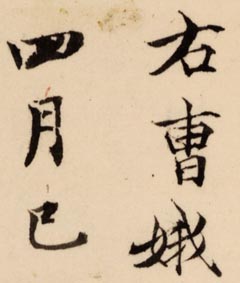 右曹娥
四月已